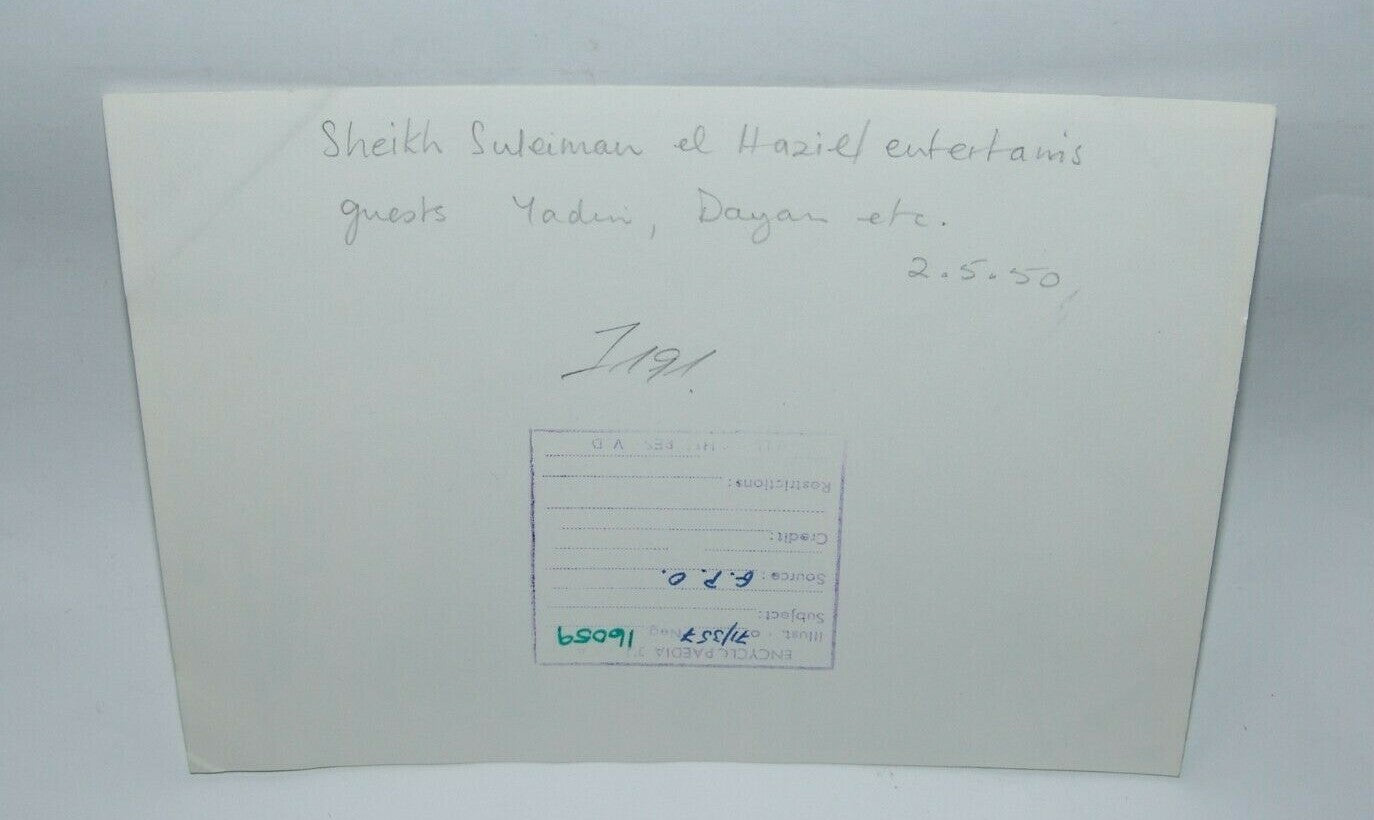 Sheikh Suleiman el Haziel entertains
guests Yadin, Dayan etc.
2.5.50
I 191.
ENCYCLOPAEDIA
Illust. 71/357 Neg 16059
Subject:
Source: G.P.O.
Credit:
Restrictions: